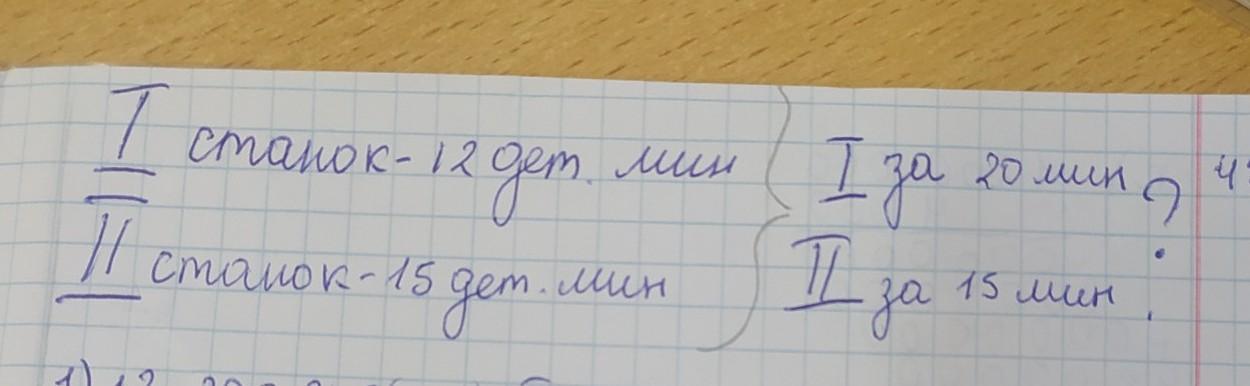 I станок - 12 дет. мин I за 20 мин ?
II станок - 15 дет. мин II за 15 мин.
1) 12